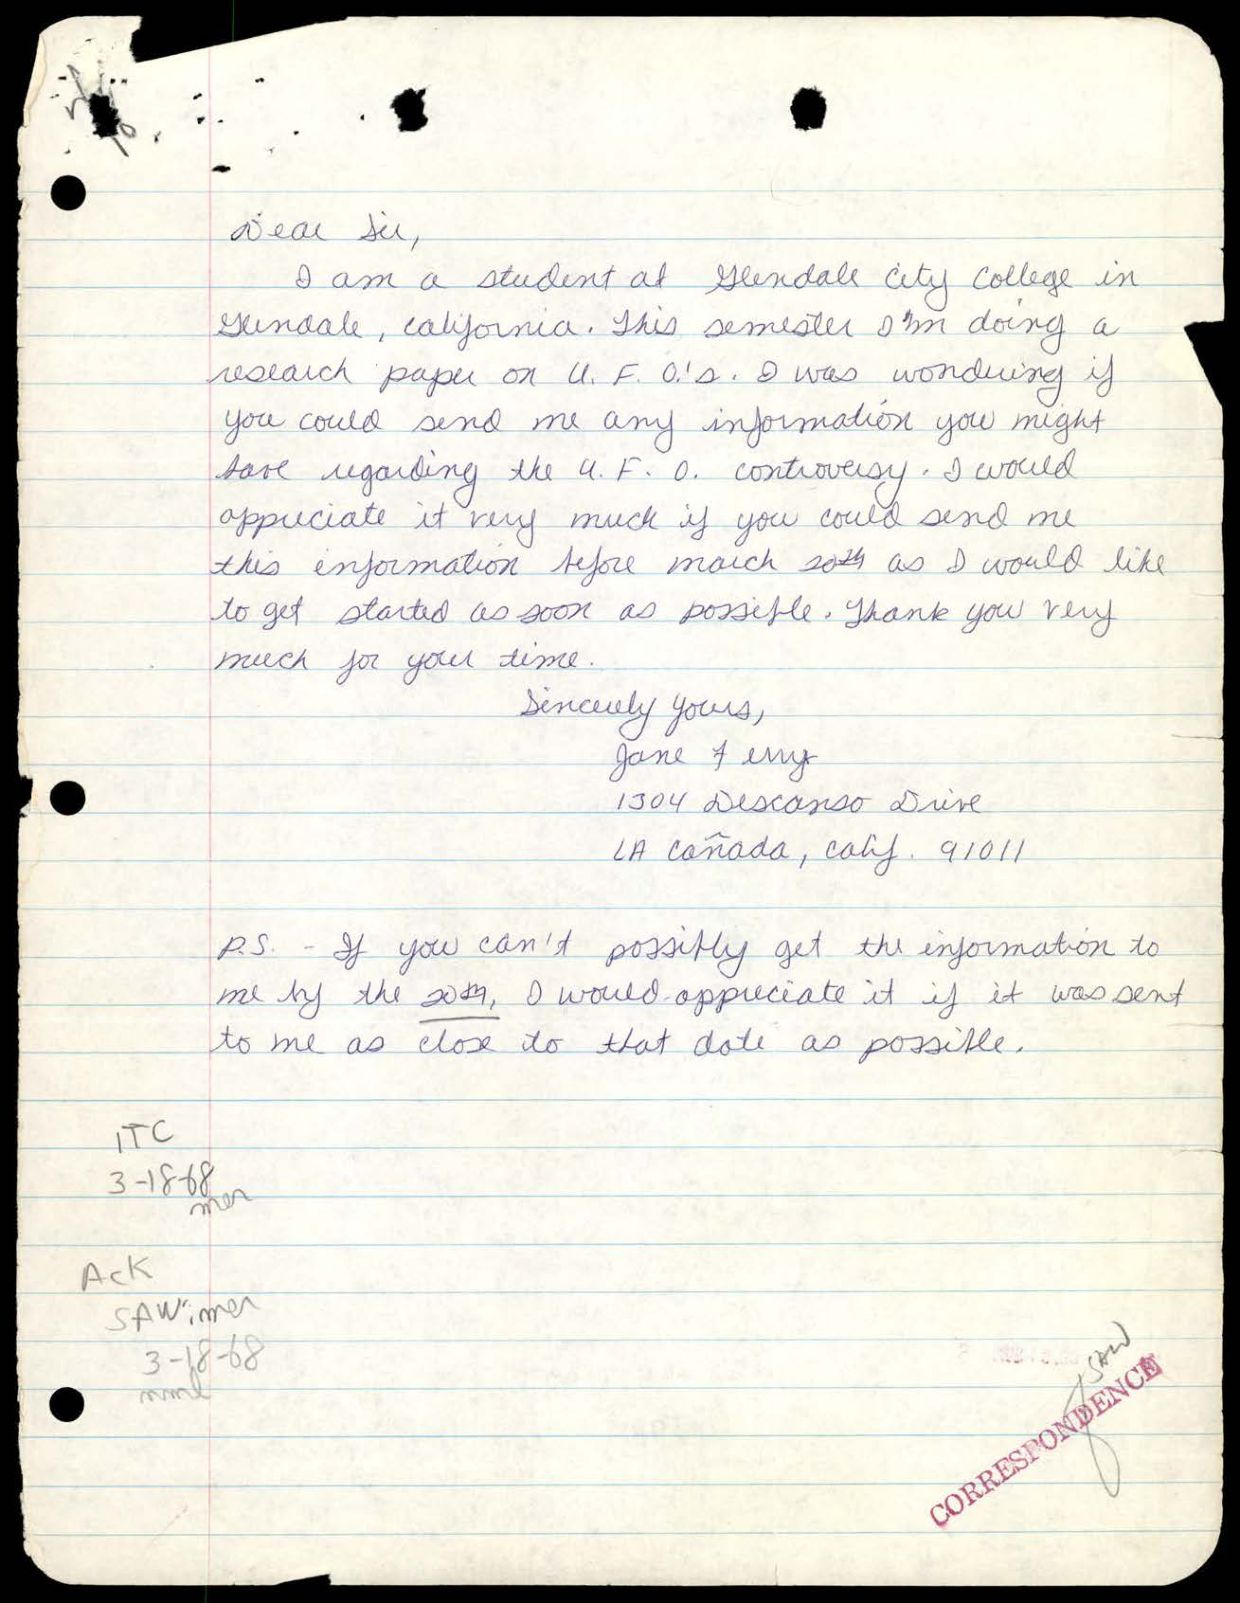 Dear Sir,
I am a student at Glendale City College in
Glendale, California. This semester I'm doing a
research paper on U. F. O.'s. I was wondering if
you could send me any information you might
have regarding the U. F. O. controversy. I would
appreciate it very much if you could send me
this information before march 20th as I would like
to get started as soon as possible. Thank you very
much for your time.
Sincerely yours,
Jane Ferry
1304 Descanso Drive
LA Cañada, Calif. 91011
P.S. - If you can't possibly get the information to
me by the 20th, I would appreciate it if it was sent
to me as close to that date as possible.
ITC
3-18-68
mer
AcK
SAW:mer
3-18-68
SAW
CORRESPONDENCE